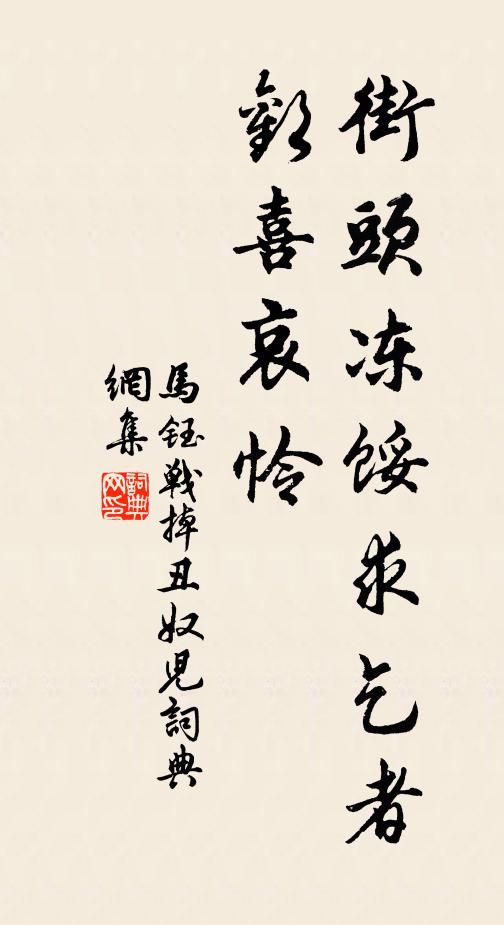 街頭冻餒求乞者
歡喜哀怜
馬鈺戰掉丑奴兒詞典
網集
詞典
网印